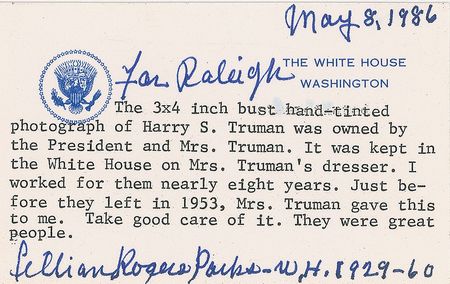 May 8, 1986
For Raleigh
THE WHITE HOUSE
WASHINGTON
The 3x4 inch bust hand-tinted
photograph of Harry S. Truman was owned by
the President and Mrs. Truman. It was kept in
the White House on Mrs. Truman's dresser. I
worked for them nearly eight years. Just be-
fore they left in 1953, Mrs. Truman gave this
to me. Take good care of it. They were great
people.
Lillian Rogers Parks-W.H. 1929-60